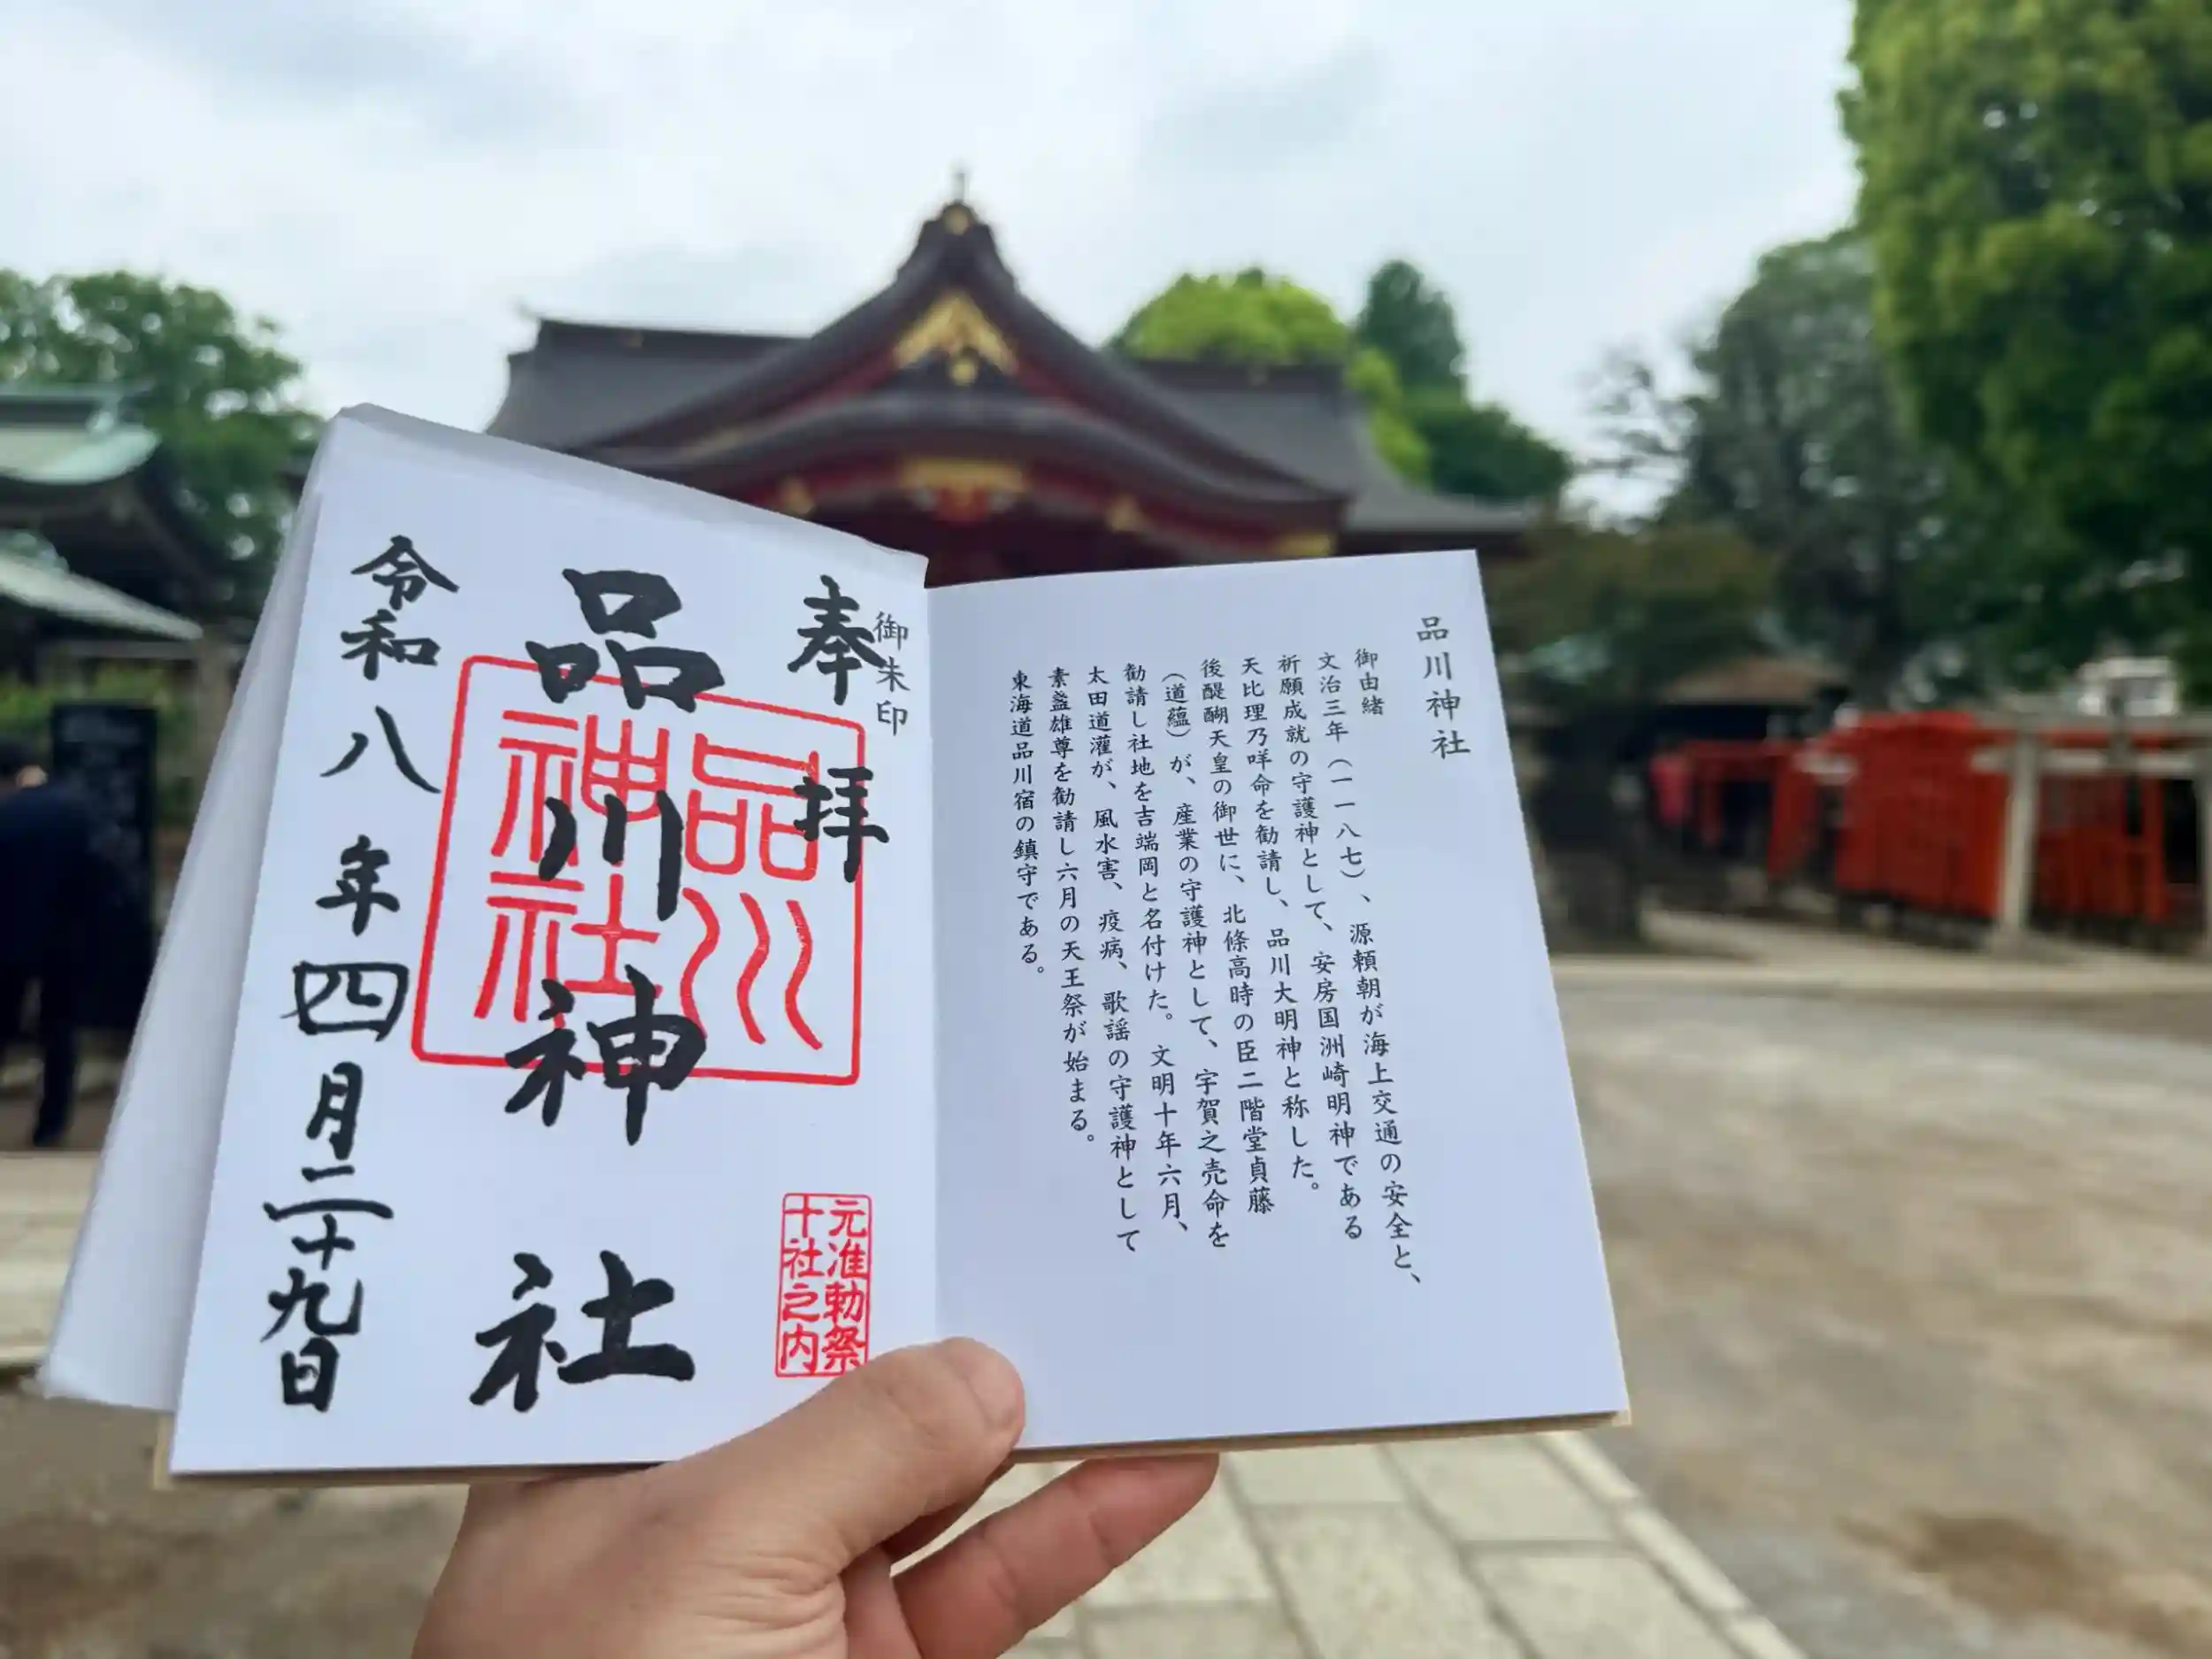 品川神社
御由緒
文治三年（一一八七）、源頼朝が海上交通の安全と、
祈願成就の守護神として、安房国洲崎明神である
天比理乃咩命を勧請し、品川大明神と称した。
後醍醐天皇の御世に、北條高時の臣二階堂貞藤
（道蘊）が、産業の守護神として、宇賀之売命を
勧請し社地を吉端岡と名付けた。文明十年六月、
太田道灌が、風水害、疫病、歌謡の守護神として
素盞雄尊を勧請し六月の天王祭が始まる。
東海道品川宿の鎮守である。
御朱印
奉拝
品川神社
品川
神社
令和八年四月二十九日
元准勅祭
十社之内